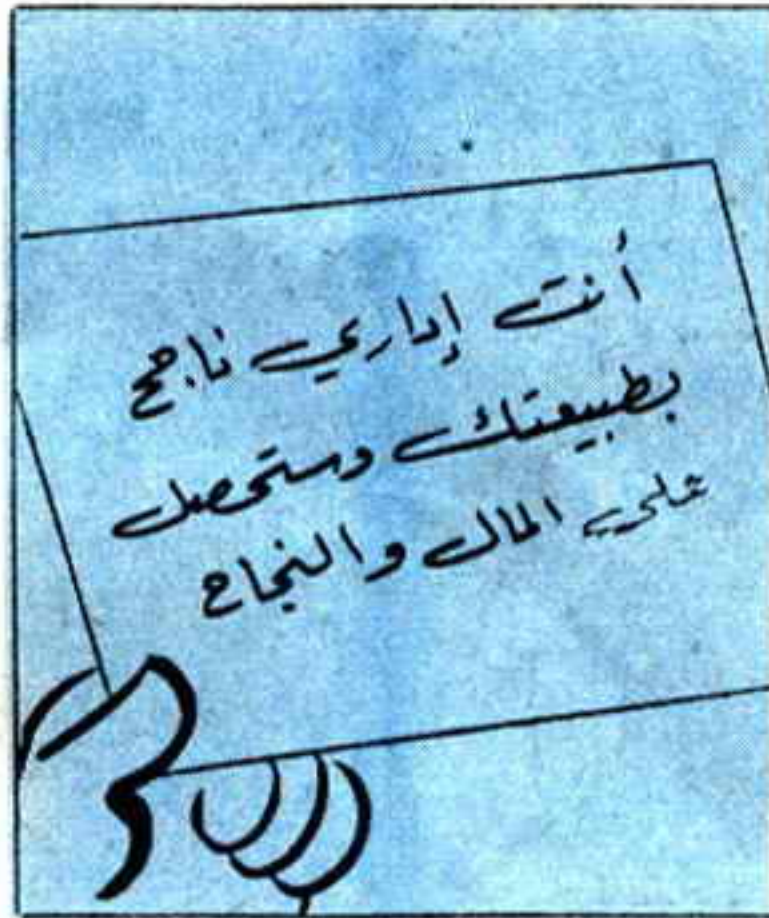 أنت إداري ناجح
بطبيعتك وستحصل
على المال والنجاح